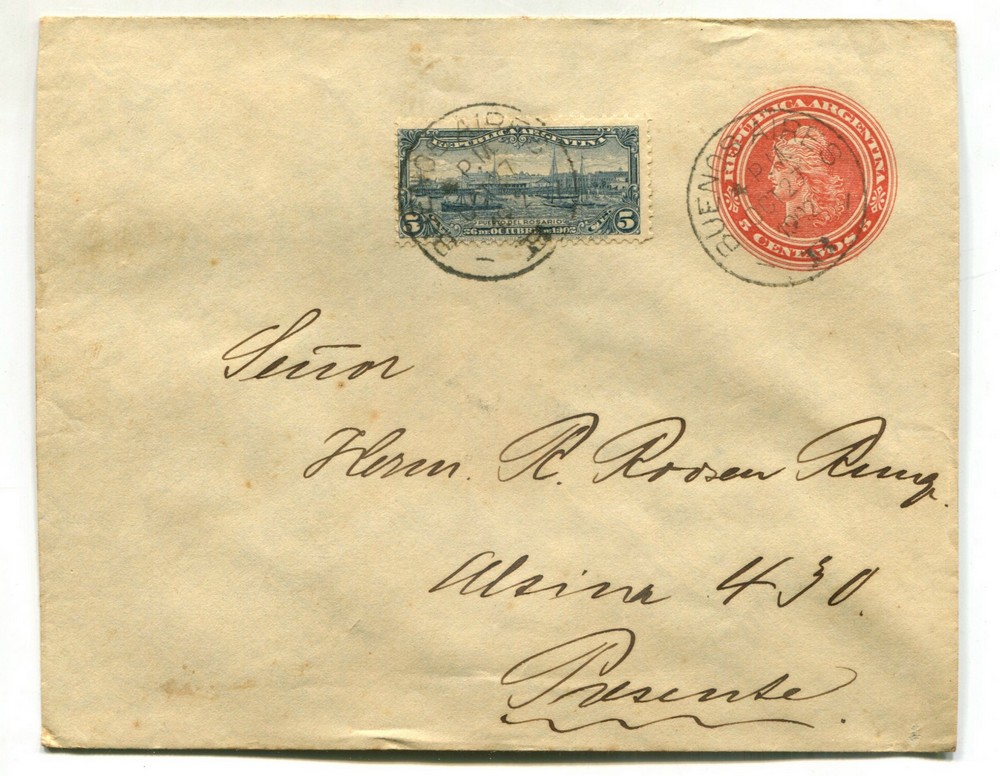 REPUBLICA ARGENTINA
PUERTO DEL ROSARIO
5 26 DE OCTUBRE DE 1902 5
BUENOS AIRES
P.M.
REPUBLICA ARGENTINA
5 CENTAVOS 5
BUENOS AIRES
P.M.
1902
Señor
Herm. R. Roosen Rung.
Alsina 430.
Presente.